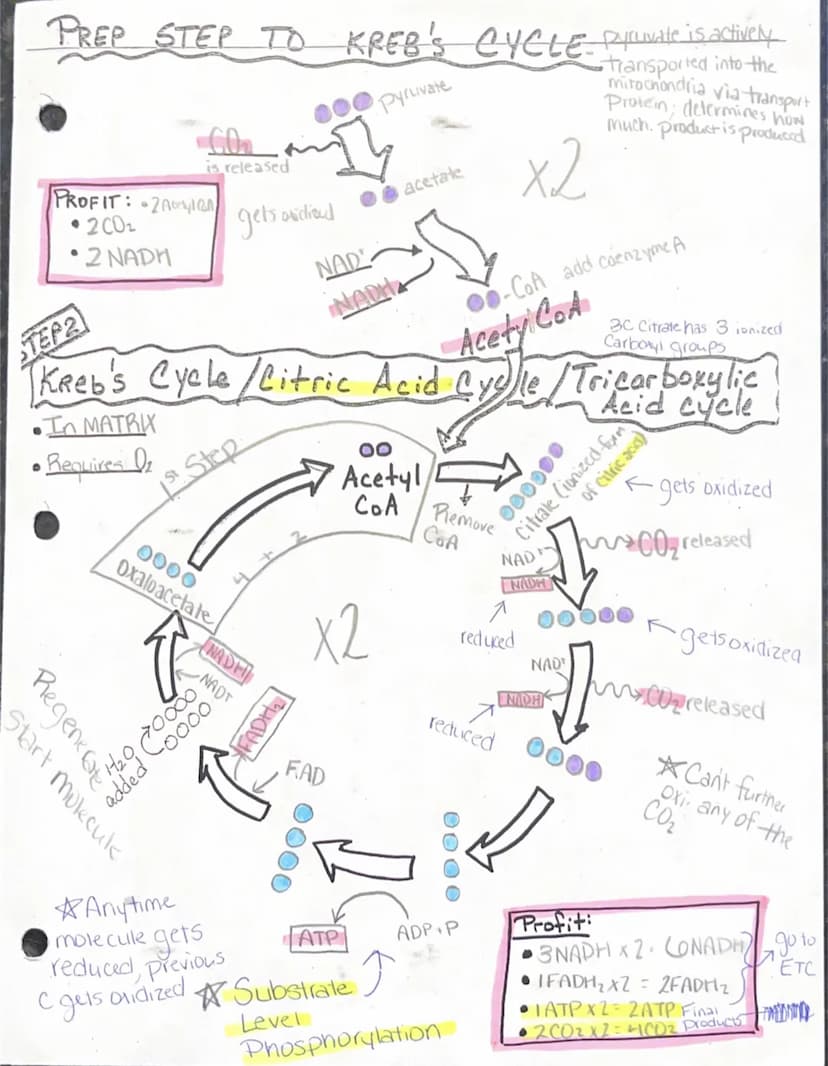 PREP STEP TO KREB'S CYCLE
pyruvate is actively
transported into the
mitochondria via transport
Protein; determines how
much. product is produced
pyruvate
CO₂
is released
acetate
X2
PROFIT: • 2 Acetyl CoA
• 2CO₂
• 2 NADH
gets oxidized
NAD⁺
NADH
-CoA add coenzyme A
Acetyl CoA
3C Citrate has 3 ionized
Carboxyl groups
STEP 2
Kreb's Cycle/Citric Acid Cycle/Tricarboxylic
Acid cycle
• In MATRIX
• Requires O₂
1st Step
Acetyl
CoA
Remove
CoA
Citrate (ionized form
of citric acid)
gets oxidized
Oxaloacetate
4 + 2
NAD⁺
NADH
CO₂ released
reduced
gets oxidized
X2
NAD⁺
NADH
CO₂ released
reduced
NADH
NAD⁺
H₂O
added
Regenerate
Start molecule
FADH₂
FAD
☆ Can't further
oxi. any of the
CO₂
ATP
ADP+P
☆ Anytime
molecule gets
reduced, previous
C gets oxidized
☆ Substrate
Level
Phosphorylation
Profit:
• 3NADH x 2 = 6NADH
• 1FADH₂ x 2 = 2FADH₂
go to
ETC
• 1ATP x 2 = 2ATP
• 2CO₂ x 2 = 4CO₂
Final
Products